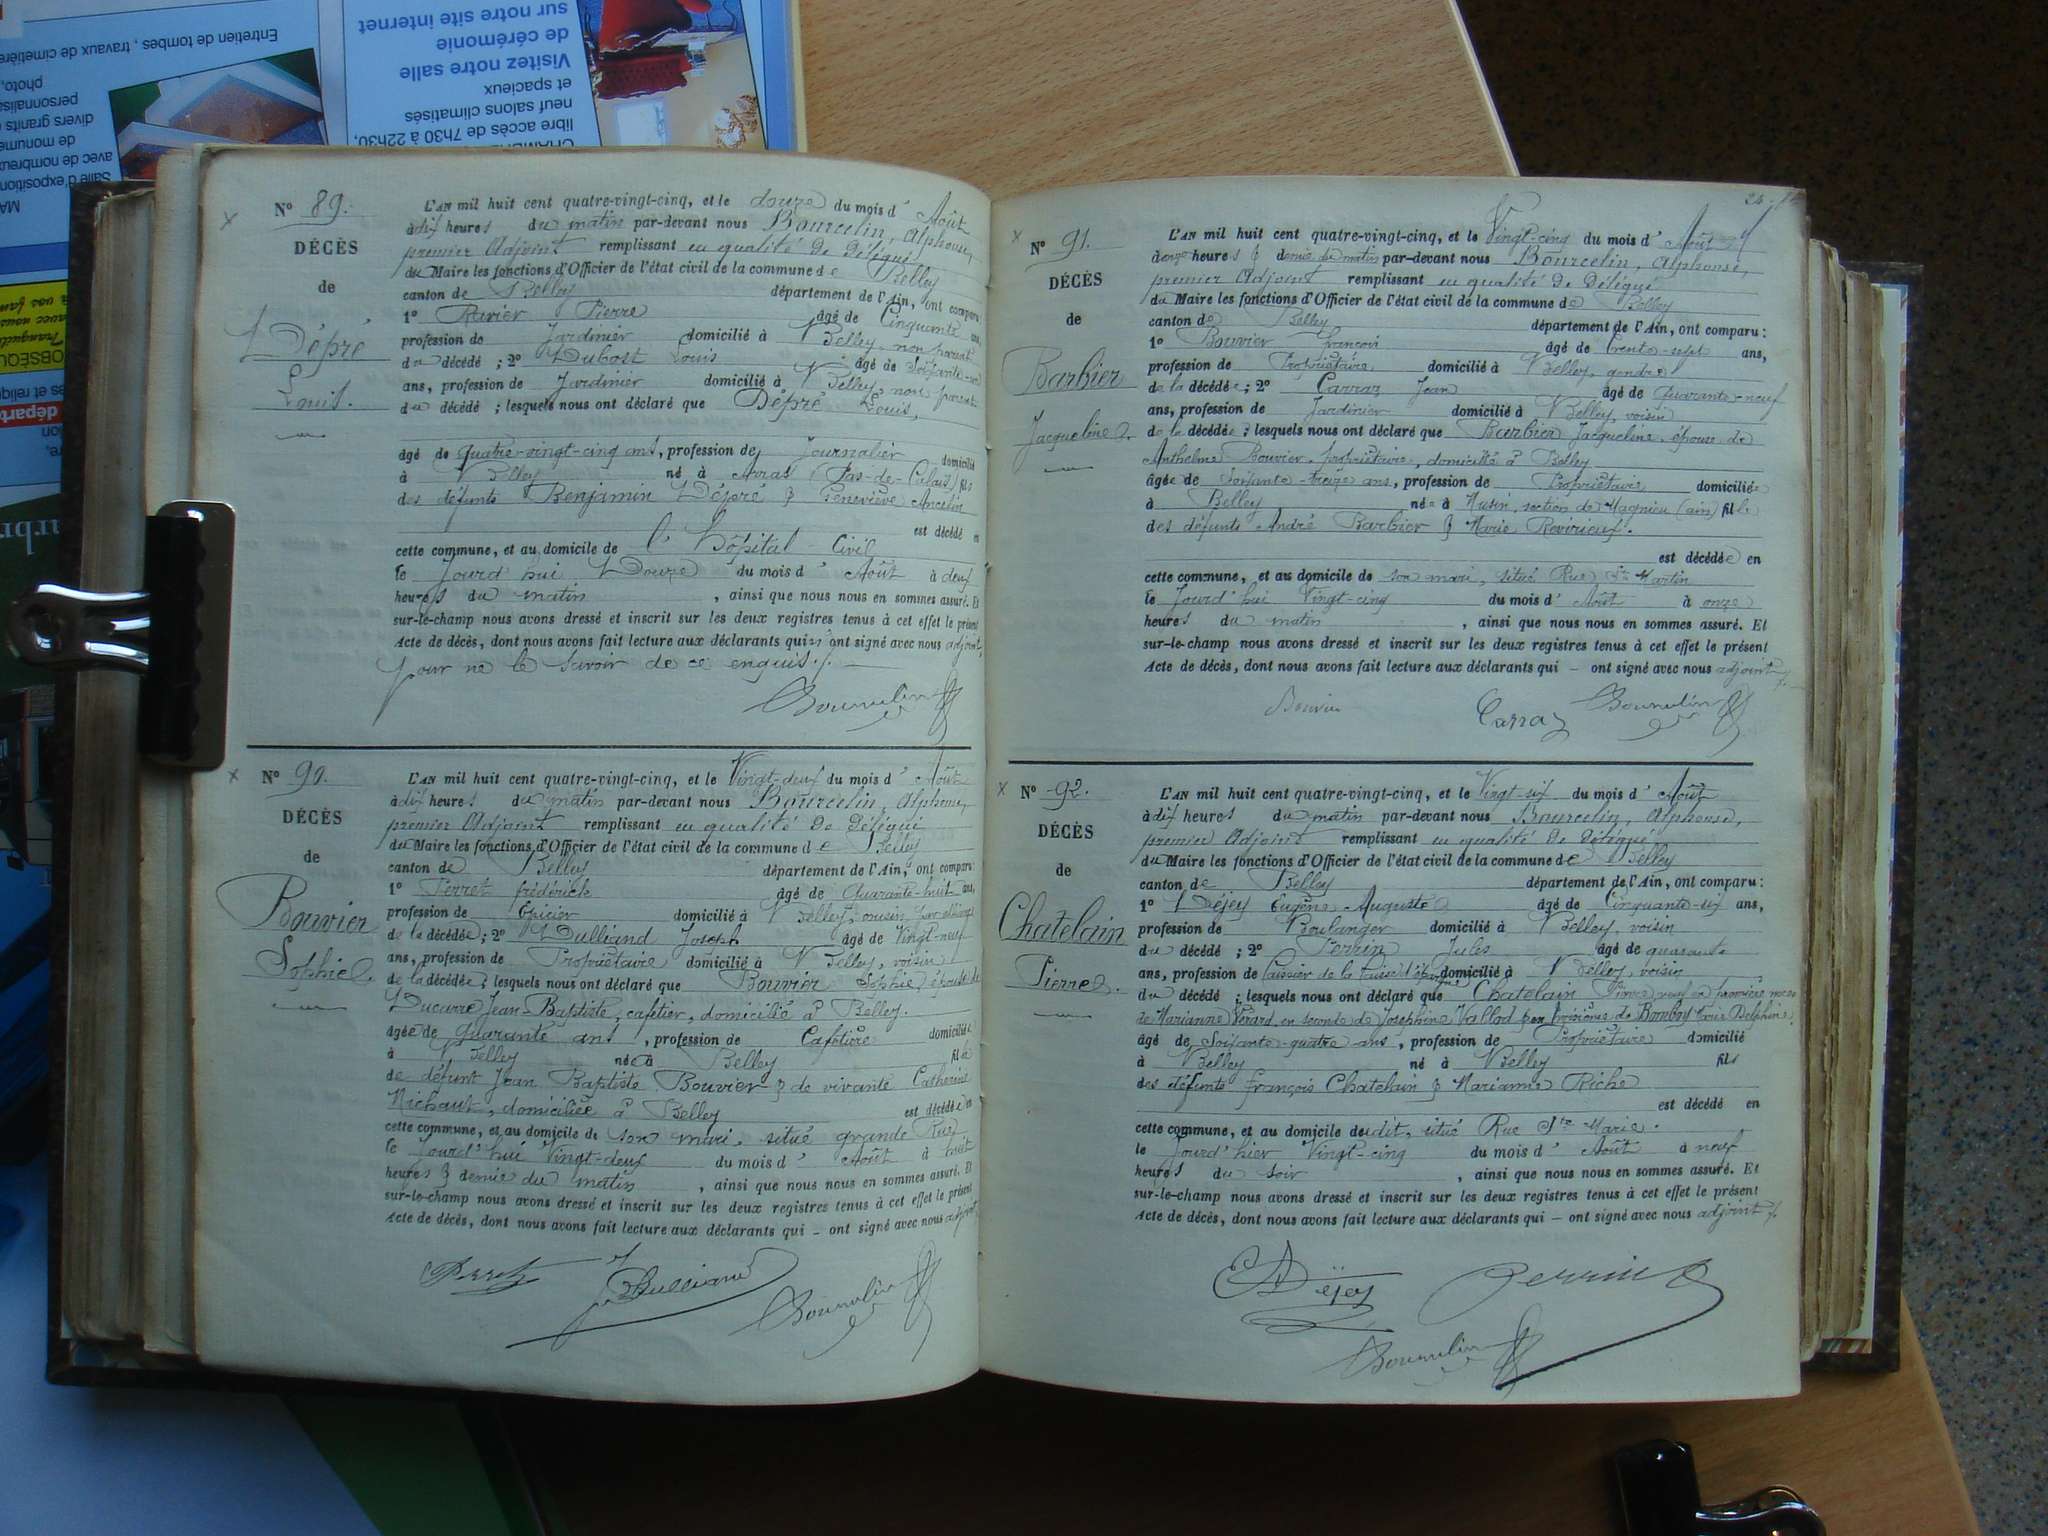 N° 89.
DÉCÈS
de
Dépré
Louis.
L'AN mil huit cent quatre-vingt-cinq, et le douze du mois d' Août
à dix heures du matin par-devant nous Bourcelin, Alphonse,
premier Adjoint remplissant en qualité de Délégué
du Maire les fonctions d'Officier de l'état civil de la commune de Belley
canton de Belley département de l'Ain, ont comparu:
1° Ravier Pierre âgé de Cinquante ans,
profession de Jardinier domicilié à Belley, non parent
du décédé ; 2° Dubost Louis âgé de Soixante-un
ans, profession de Jardinier domicilié à Belley, non parent
du décédé ; lesquels nous ont déclaré que Dépré Louis,
âgé de quatre-vingt-cinq ans, profession de Journalier domicilié
à Belley né à Arras (Pas-de-Calais) fils
des défunts Benjamin Dépré & Geneviève Ancelin
est décédé en
cette commune, et au domicile de l'hôpital-Civil
le Jourd'hui Douze du mois d' Août à deux
heures du matin , ainsi que nous nous en sommes assuré. Et
sur-le-champ nous avons dressé et inscrit sur les deux registres tenus à cet effet le présent
Acte de décès, dont nous avons fait lecture aux déclarants qui n'ont signé avec nous adjoint,
pour ne le savoir de ce enquis./.
Bourcelin
N° 90.
DÉCÈS
de
Bouvier
Sophie.
L'AN mil huit cent quatre-vingt-cinq, et le Vingt-deux du mois d' Août
à dix heures du matin par-devant nous Bourcelin, Alphonse,
premier Adjoint remplissant en qualité de Délégué
du Maire les fonctions d'Officier de l'état civil de la commune de Belley
canton de Belley département de l'Ain, ont comparu:
1° Perret frédérick âgé de Quarante-huit ans,
profession de Epicier domicilié à Belley, cousin par alliance
de la décédée ; 2° Dulliand Joseph âgé de Vingt-neuf
ans, profession de Propriétaire domicilié à Belley, voisin
de la décédée ; lesquels nous ont déclaré que Bouvier Sophie épouse de
Ducurre Jean-Baptiste, cafetier, domicilié à Belley.
âgée de quarante ans , profession de Cafetière domiciliée
à Belley née à Belley fille
de défunt Jean Baptiste Bouvier & de vivante Catherine
Michaut, domiciliée à Belley est décédée en
cette commune, et au domicile de son mari, situé grande Rue
le Jourd'hui Vingt-deux du mois d' Août à huit
heures & demie du matin , ainsi que nous nous en sommes assuré. Et
sur-le-champ nous avons dressé et inscrit sur les deux registres tenus à cet effet le présent
Acte de décès, dont nous avons fait lecture aux déclarants qui – ont signé avec nous adjoint
Perret Dulliand Bourcelin
N° 91.
DÉCÈS
de
Barbier
Jacqueline.
L'AN mil huit cent quatre-vingt-cinq, et le Vingt-cinq du mois d' Août
à onze heures & demie du matin par-devant nous Bourcelin, Alphonse,
premier Adjoint remplissant en qualité de Délégué
du Maire les fonctions d'Officier de l'état civil de la commune de Belley
canton de Belley département de l'Ain, ont comparu:
1° Bouvier François âgé de trente-sept ans,
profession de Propriétaire domicilié à Belley, gendre
de la décédée ; 2° Carraz Jean âgé de Quarante-neuf
ans, profession de Jardinier domicilié à Belley, voisin
de la décédée ; lesquels nous ont déclaré que Barbier Jacqueline, épouse de
Anthelme Bouvier, propriétaire, domicilié à Belley
âgée de Soixante-treize ans, profession de Propriétaire domiciliée
à Belley née à Musin, section de Magnieu (ain) fille
des défunts André Barbier & Marie Revirieux.
est décédée en
cette commune, et au domicile de son mari, situé Rue St Martin
le Jourd'hui Vingt-cinq du mois d' Août à onze
heures du matin , ainsi que nous nous en sommes assuré. Et
sur-le-champ nous avons dressé et inscrit sur les deux registres tenus à cet effet le présent
Acte de décès, dont nous avons fait lecture aux déclarants qui – ont signé avec nous adjoint./.
Bouvier Carraz Bourcelin
N° 92.
DÉCÈS
de
Chatelain
Pierre.
L'AN mil huit cent quatre-vingt-cinq, et le Vingt-six du mois d' Août
à dix heures du matin par-devant nous Bourcelin, Alphonse,
premier Adjoint remplissant en qualité de Délégué
du Maire les fonctions d'Officier de l'état civil de la commune de Belley
canton de Belley département de l'Ain, ont comparu:
1° Déjey Eugène Auguste âgé de Cinquante-six ans,
profession de Boulanger domicilié à Belley, voisin
du décédé ; 2° Perrin Jules âgé de quarante
ans, profession de Caissier de la caisse d'épargne domicilié à Belley, voisin
du décédé ; lesquels nous ont déclaré que Chatelain Pierre, veuf en première noces
de Marianne Vérard, en seconde de Josephine Vallod & en troisième de Bomboy Marie Delphine,
âgé de Soixante-quatre ans , profession de Propriétaire domicilié
à Belley né à Belley fils
des défunts françois Chatelain & Marianne Riche
est décédé en
cette commune, et au domicile de sudit, situé Rue Ste Marie.
le Jourd'hier Vingt-cinq du mois d' Août à neuf
heures du soir , ainsi que nous nous en sommes assuré. Et
sur-le-champ nous avons dressé et inscrit sur les deux registres tenus à cet effet le présent
Acte de décès, dont nous avons fait lecture aux déclarants qui – ont signé avec nous adjoint./.
Déjey Perrin
Bourcelin
Entretien de tombes, travaux de cimetière
photo,
personnalisa
divers granits
de monume
avec de nombreux
Salle d'exposition
sur notre site internet
de cérémonie
Visitez notre salle
et spacieux
neuf salons climatisés
libre accès de 7h30 à 22h30,
OBSÈQU
départ